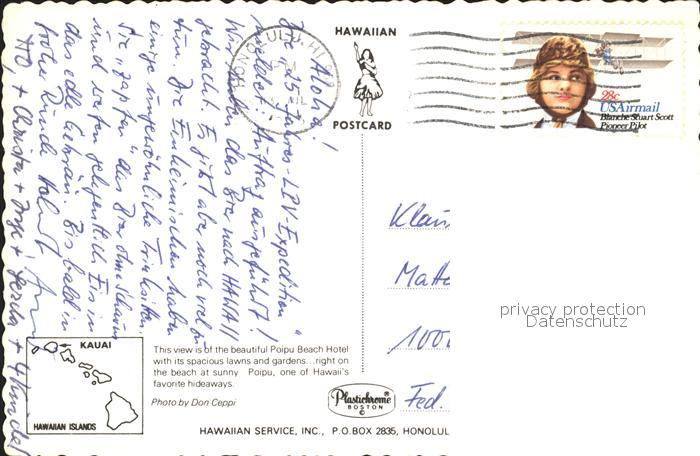 HAWAIIAN
POSTCARD
HONOLULU, HI
28c
USAirmail
Blanche Stuart Scott
Pioneer Pilot
Aloha!
Die "25 Jahres-LPV-Expedition"
meldet: Auftrag ausgeführt!
Wir haben das Bier nach HAWAII
gebracht. Es gibt aber noch viel zu
tun. Die Einheimischen haben
einige ungewöhnliche Trinksitten.
Sie "zapfen" das Bier ohne Schaum
und werfen gelegentlich Eis in
das edle Getränk. Bis bald in
alter
HO + Christa + Inge + + 4 Kinder
Klaus
Matte
1000
Fed.
privacy protection
Datenschutz
KAUAI
HAWAIIAN ISLANDS
This view is of the beautiful Poipu Beach Hotel
with its spacious lawns and gardens...right on
the beach at sunny Poipu, one of Hawaii's
favorite hideaways.
Photo by Don Ceppi
Plastichrome
BOSTON
©
HAWAIIAN SERVICE, INC., P.O.BOX 2835, HONOLUL